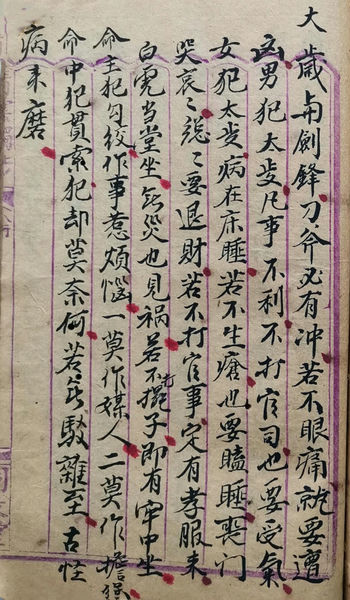 大歲与劍鋒刀斧必有冲若不眼痛就要遭
凶男犯太歲凡事不利不打官司也要受氣
女犯太歲病在床睡若不生瘡也要瞌睡喪门
哭哀哀 要退財若不打官事定有孝服来
白虎当堂坐無災也見禍若不擺子即有牢中坐
命主犯勾絞作事惹煩惱一莫作媒人二莫作擔保
命中犯貫索犯却莫奈何若無駁雜至古怪
病来磨